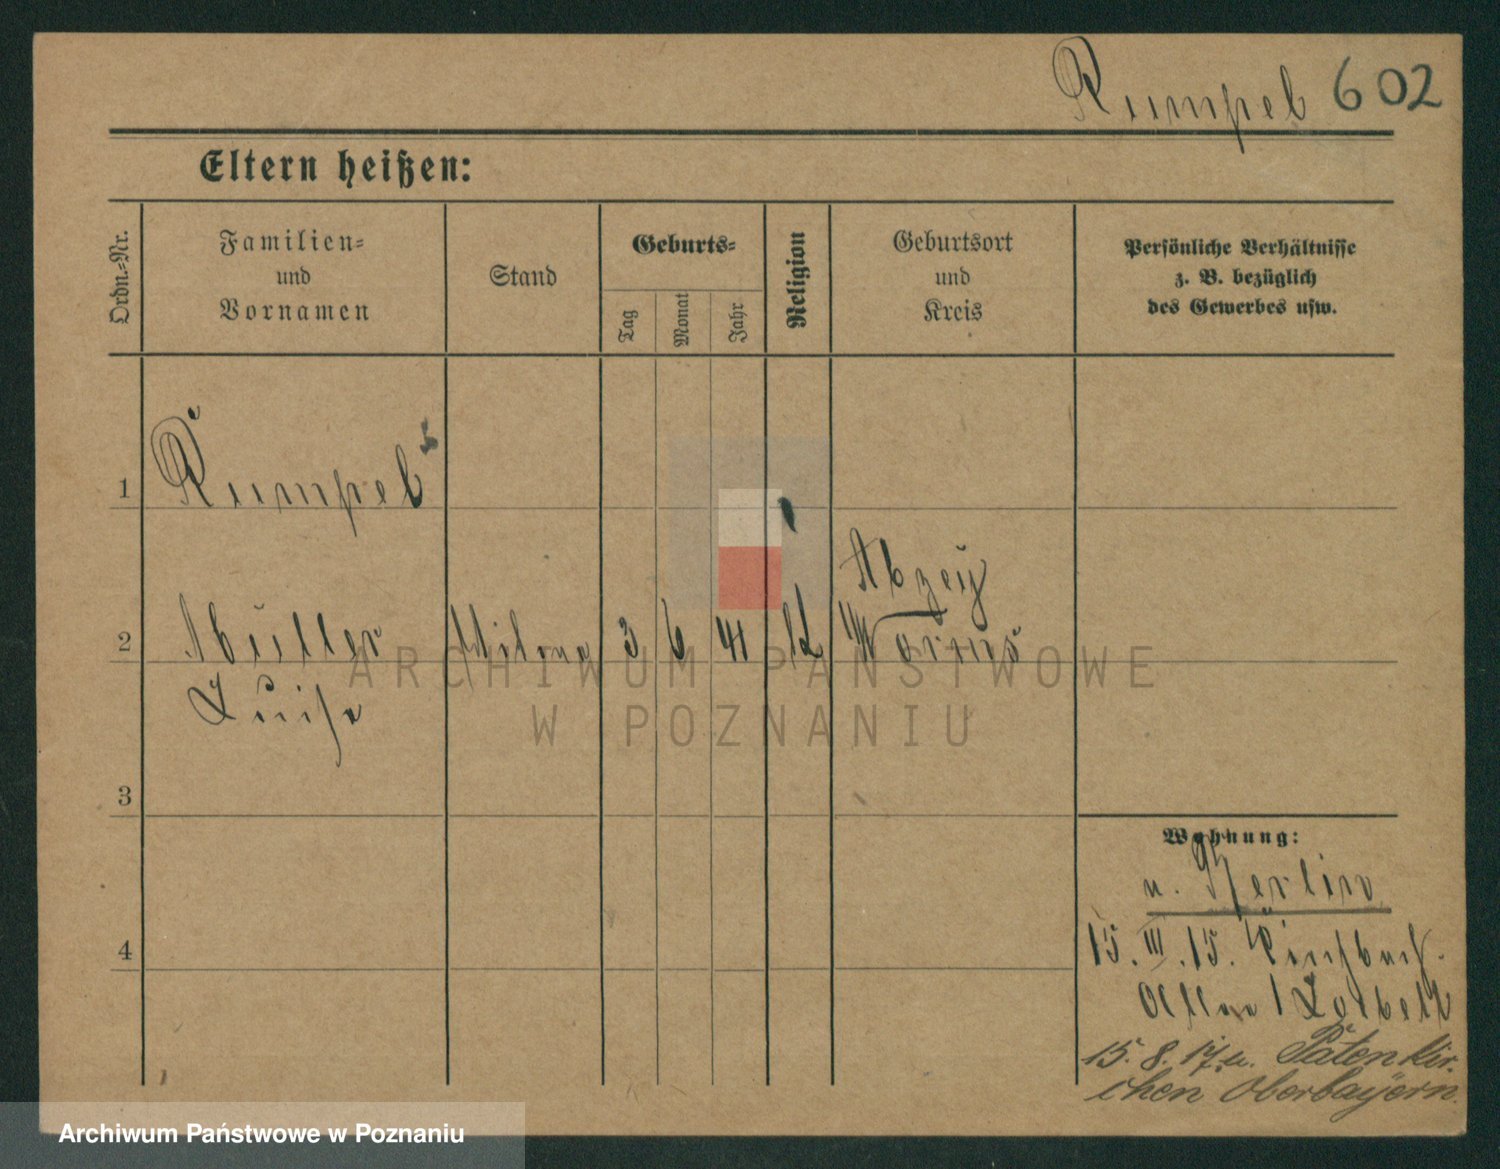 Rumpel 602
Eltern heißen:
Ordn.=Nr.
Familien=
und
Vornamen
Stand
Geburts=
Tag
Monat
Jahr
Religion
Geburtsort
und
Kreis
Persönliche Verhältnisse
z. B. bezüglich
des Gewerbes usw.
1 Rumpel
Alzey
2 Müller Witwe 3 6 41 K Worms
Luise
3
4
Wohnung:
n. Berlin
15. III. 15.
15. 8. 17. n. Patenkir-
chen Oberbayern.
ARCHIWUM PAŃSTWOWE
W POZNANIU
Archiwum Państwowe w Poznaniu